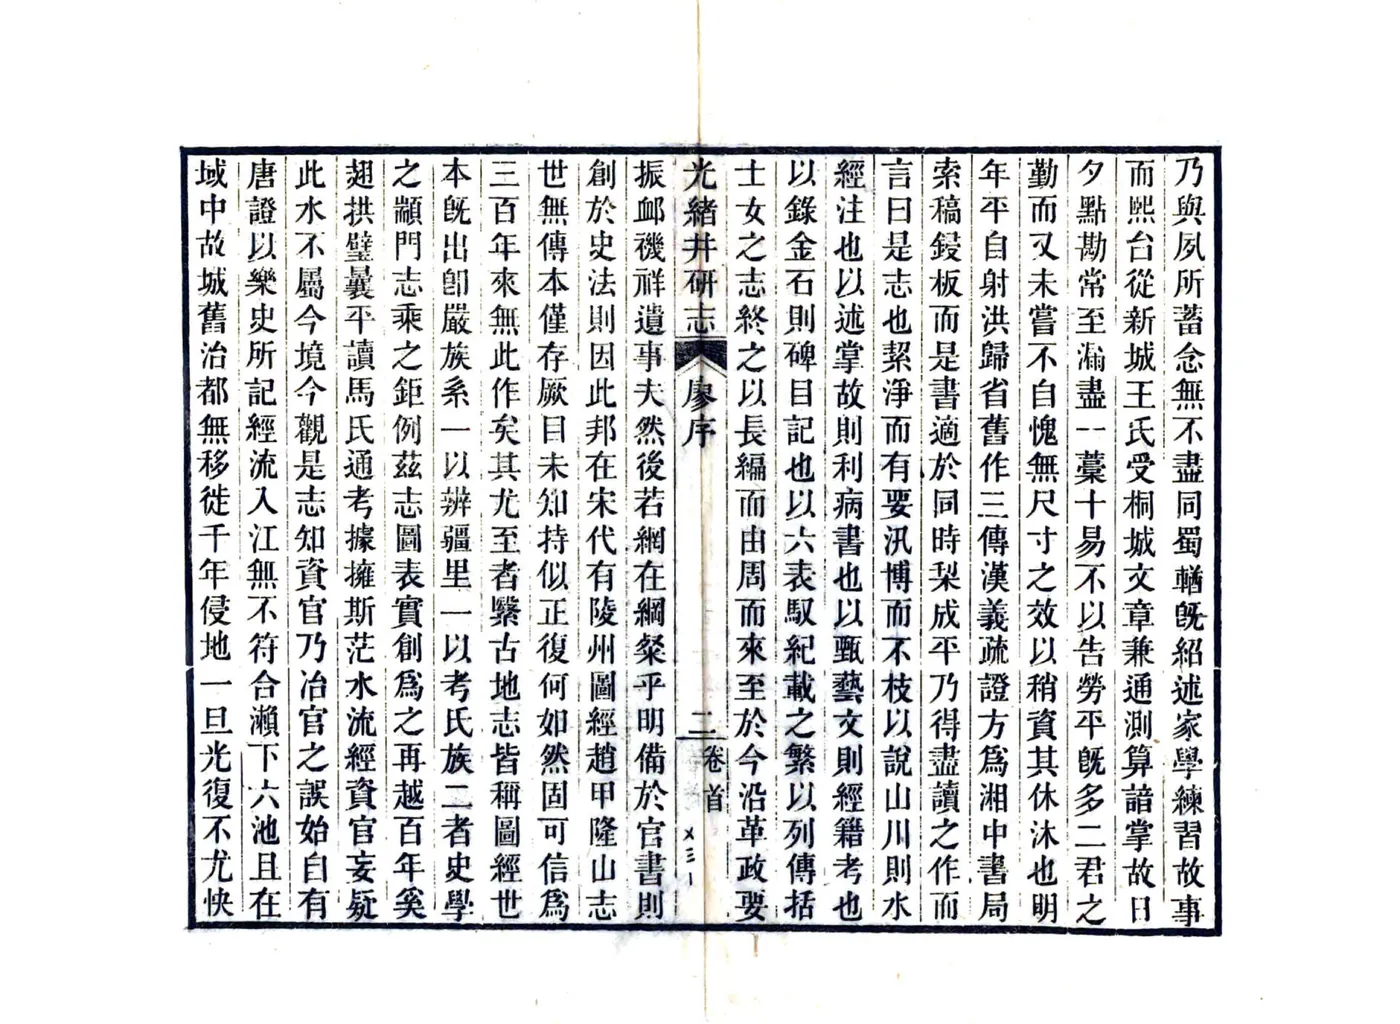 乃與夙所蓄念無不盡同蜀輶旣紹述家學練習故事
而熙台從新城王氏受桐城文章兼通測算諳掌故日
夕點勘常至漏盡一藁十易不以告勞平旣多二君之
勤而又未嘗不自愧無尺寸之效以稍資其休沐也明
年平自射洪歸省舊作三傳漢義疏證方爲湘中書局
索稿鋟板而是書適於同時梨成平乃得盡讀之作而
言曰是志也絜淨而有要汎博而不枝以說山川則水
經注也以述掌故則利病書也以甄藝文則經籍考也
以錄金石則碑目記也以六表馭紀載之繁以列傳括
士女之志終之以長編而由周而來至於今沿革政要
光緒井研志 廖序 二 卷首
振䘏禨祥遺事夫然後若網在綱粲乎明備於官書則
創於史法則因此邦在宋代有陵州圖經趙甲隆山志
世無傳本僅存厥目未知持似正復何如然固可信爲
三百年來無此作矣其尤至者繄古地志皆稱圖經世
本旣出卽嚴族系一以辨疆里一以考氏族二者史學
之顓門志乘之鉅例茲志圖表實創爲之再越百年奚
翅拱璧曩平讀馬氏通考據擁斯茫水流經資官妄疑
此水不屬今境今觀是志知資官乃冶官之誤始自有
唐證以樂史所記經流入江無不符合瀨下六池且在
域中故城舊治都無移徙千年侵地一旦光復不尤快